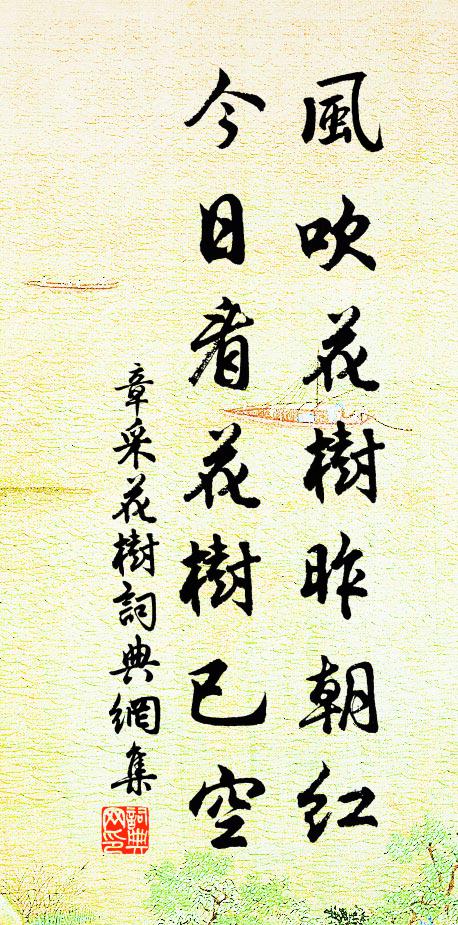 風吹花樹昨朝紅
今日看花樹已空
章采花樹詞典網集
詞典網印